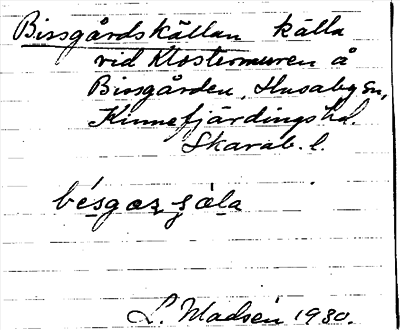 Bissgårdskällan källa
vid Klostermuren å
Bissgården, Husaby sn,
Kinnefjärdings hd.
Skarab. l.
bésgaz ʂäla
L. Madsén 1930.